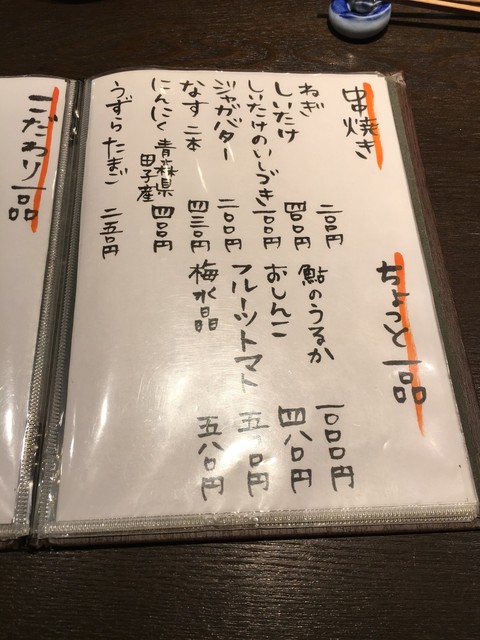 串焼き
ねぎ 二〇〇円
しいたけ 四〇〇円
しいたけのいしづき 一〇〇円
ジャガバター 二〇〇円
なす 二本 四三〇円
にんにく 青森県田子産 四〇〇円
うずらたまご 二五〇円
ちょっと一品
鮎のうるか 一〇〇〇円
おしんこ 四八〇円
フルーツトマト
梅水晶 五八〇円
こだわり一品